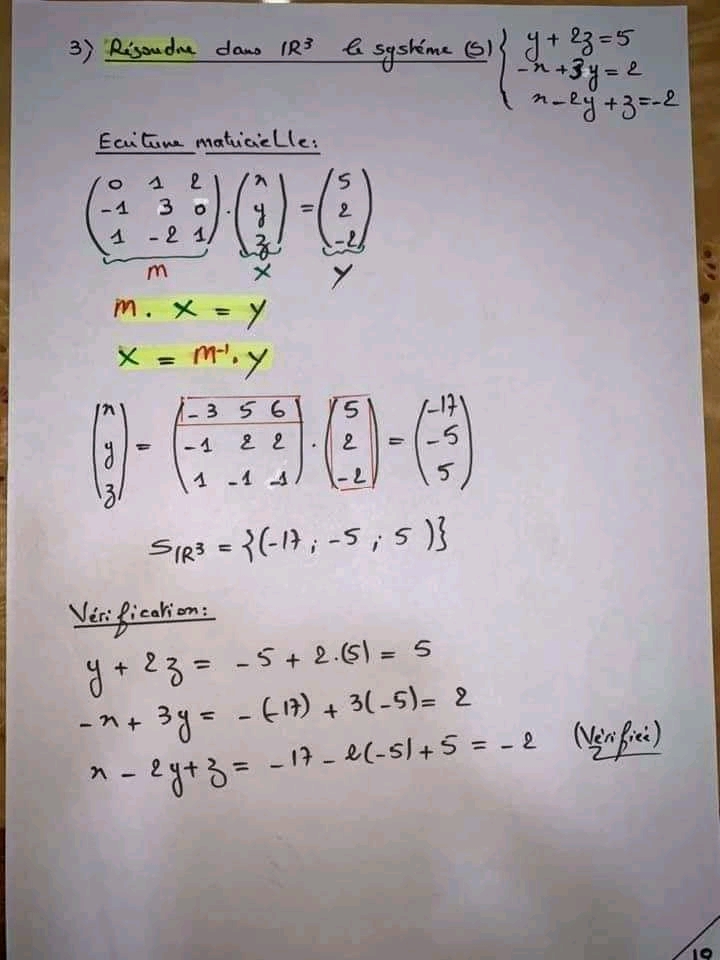 3) Résoudre dans IR³ le système (S) { y + 2z = 5
-x + 3y = 2
x - 2y + z = -2
Ecriture matricielle:
( 0 1 2 ) ( x ) ( 5 )
( -1 3 0 ) . ( y ) = ( 2 )
( 1 -2 1 ) ( z ) ( -2 )
m X Y
m . X = Y
X = m⁻¹ . Y
( x ) ( -3 5 6 ) ( 5 ) ( -17 )
( y ) = ( -1 2 2 ) . ( 2 ) = ( -5 )
( z ) ( 1 -1 -1 ) ( -2 ) ( 5 )
S IR³ = {(-17 ; -5 ; 5 )}
Vérification:
y + 2z = -5 + 2.(5) = 5
-x + 3y = -(-17) + 3(-5) = 2
x - 2y + z = -17 - 2(-5) + 5 = -2 (Vérifiée)
19